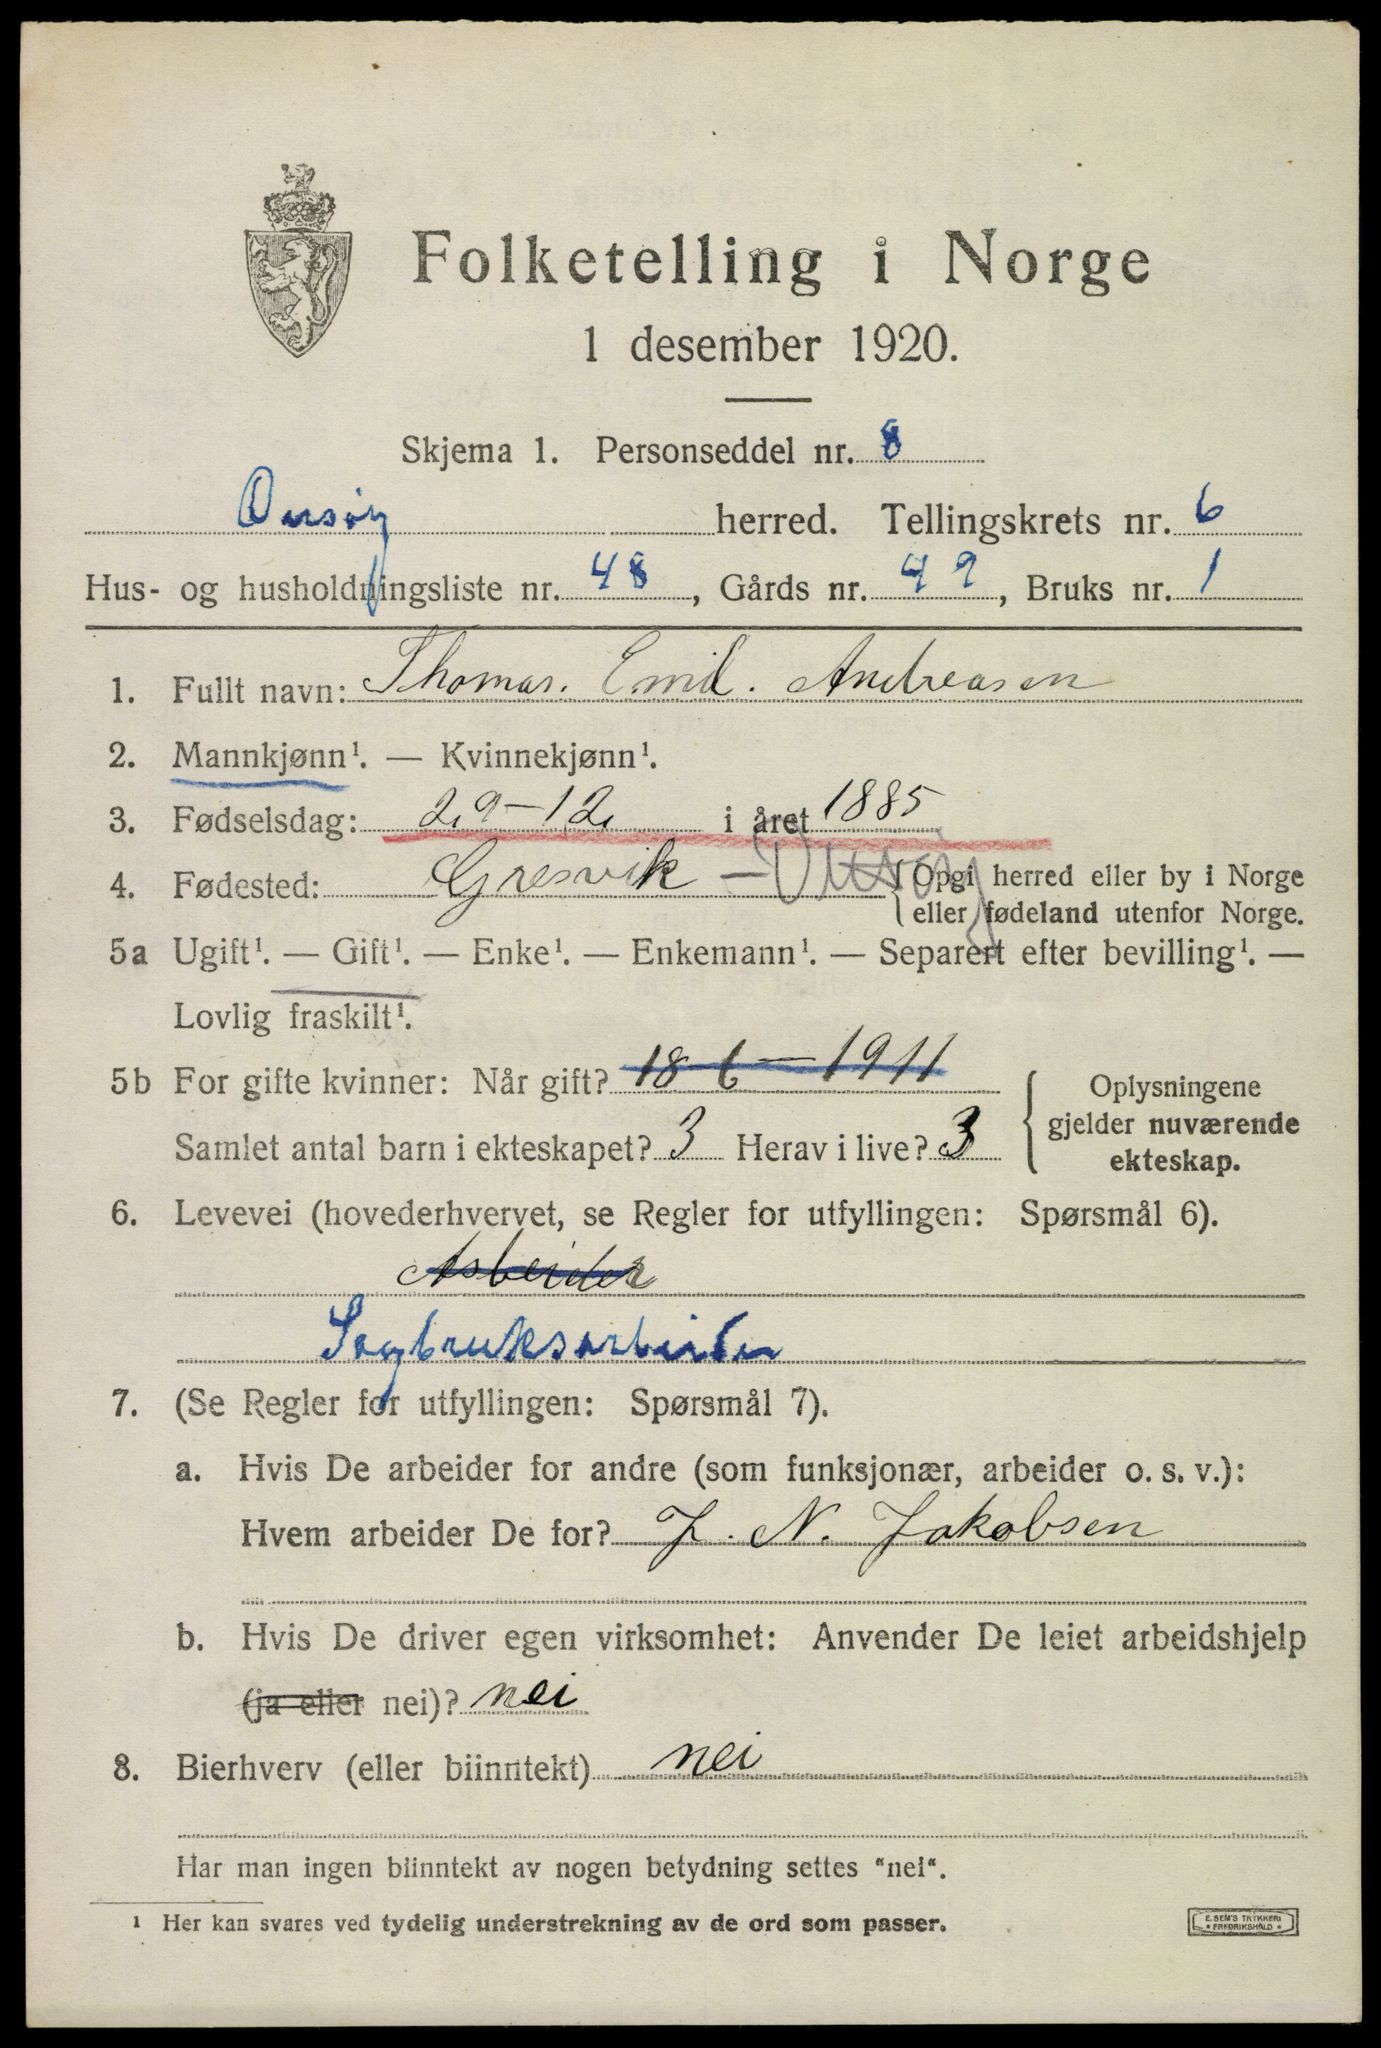 Folketelling i Norge
1 desember 1920.
Skjema 1. Personseddel nr. 8
Onsøy herred. Tellingskrets nr. 6
Hus- og husholdningsliste nr. 48, Gårds nr. 49, Bruks nr. 1
1. Fullt navn: Thomas. Emil. Andreasen
2. Mannkjønn¹. — Kvinnekjønn¹.
3. Fødselsdag: 29-12 i året 1885
4. Fødested: Gresvik — Onsøy {Opgi herred eller by i Norge
eller fødeland utenfor Norge.
5a Ugift¹. — Gift¹. — Enke¹. — Enkemann¹. — Separert efter bevilling¹. —
Lovlig fraskilt¹.
5b For gifte kvinner: Når gift? 18-6-1911
Samlet antal barn i ekteskapet? 3 Herav i live? 3
Oplysningene
gjelder nuværende
ekteskap.
6. Levevei (hovederhvervet, se Regler for utfyllingen: Spørsmål 6).
Arbeider
Sagbruksarbeider
7. (Se Regler for utfyllingen: Spørsmål 7).
a. Hvis De arbeider for andre (som funksjonær, arbeider o. s. v.):
Hvem arbeider De for? J. N. Jakobsen
b. Hvis De driver egen virksomhet: Anvender De leiet arbeidshjelp
(ja eller nei)? nei
8. Bierhverv (eller biinntekt) nei
Har man ingen biinntekt av nogen betydning settes "nei".
¹ Her kan svares ved tydelig understrekning av de ord som passer.
E. SEM'S TRYKKERI
FREDRIKSHALD